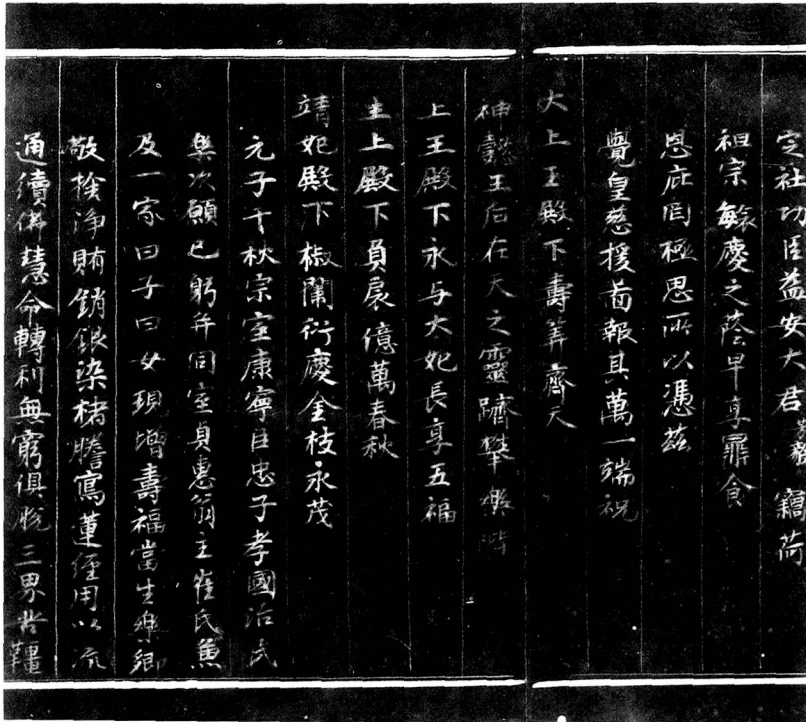 定社功臣益安大君芳毅竊荷
祖宗毓慶之蔭早享鼎食
恩庇罔極思所以憑玆
覺皇慈援啚報其萬一端祝
大上王殿下壽筭齊天
神懿王后在天之靈躋攀樂階
上王殿下永与大妃長享五福
主上殿下負扆億萬春秋
靖妃殿下椒闈衍慶金枝永茂
元子千秋宗室康寧臣忠子孝國治民
樂次願已躬并同室貞惠翁主崔氏曁
及一家曰子曰女現增壽福當生樂鄉
敬捨淨賄銷銀染楮謄寫蓮經用以流
通續佛慧命轉利無窮俱脫三界